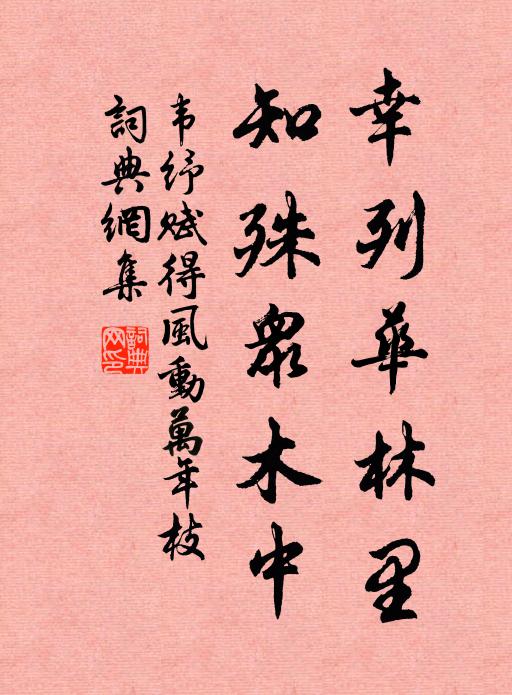 幸列華林里
知殊眾木中
韦紓赋得風動萬年枝
詞典網集
詞典网印